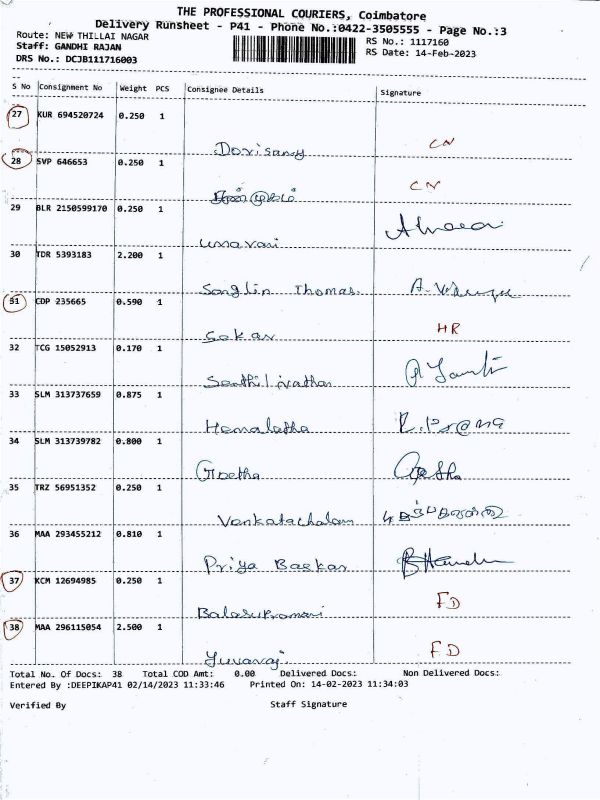 THE PROFESSIONAL COURIERS, Coimbatore
Delivery Runsheet - P41 - Phone No.:0422-3505555 - Page No.:3
Route: NEW THILLAI NAGAR
RS No.: 1117160
Staff: GANDHI RAJAN
RS Date: 14-Feb-2023
DRS No.: DCJB111716003
S No Consignment No Weight PCS Consignee Details Signature
27 KUR 694520724 0.250 1
Dorisamy CN
28 SVP 646653 0.250 1
CN
29 BLR 2150599170 0.250 1
umavani
30 TDR 5393183 2.200 1
Songlin Thomas.
31 CDP 235665 0.590 1
Sekar HR
32 TCG 15052913 0.170 1
Senthil nathan
33 SLM 313737659 0.875 1
Hemalatha
34 SLM 313739782 0.800 1
Geetha Geetha
35 TRZ 56951352 0.250 1
Venkatachalam
36 MAA 293455212 0.810 1
Priya Baskar
37 KCM 12694985 0.250 1
Balasubramani FD
38 MAA 296115054 2.500 1
Yuvaraj. FD
Total No. Of Docs: 38 Total COD Amt: 0.00 Delivered Docs: Non Delivered Docs:
Entered By :DEEPIKAP41 02/14/2023 11:33:46 Printed On: 14-02-2023 11:34:03
Verified By Staff Signature